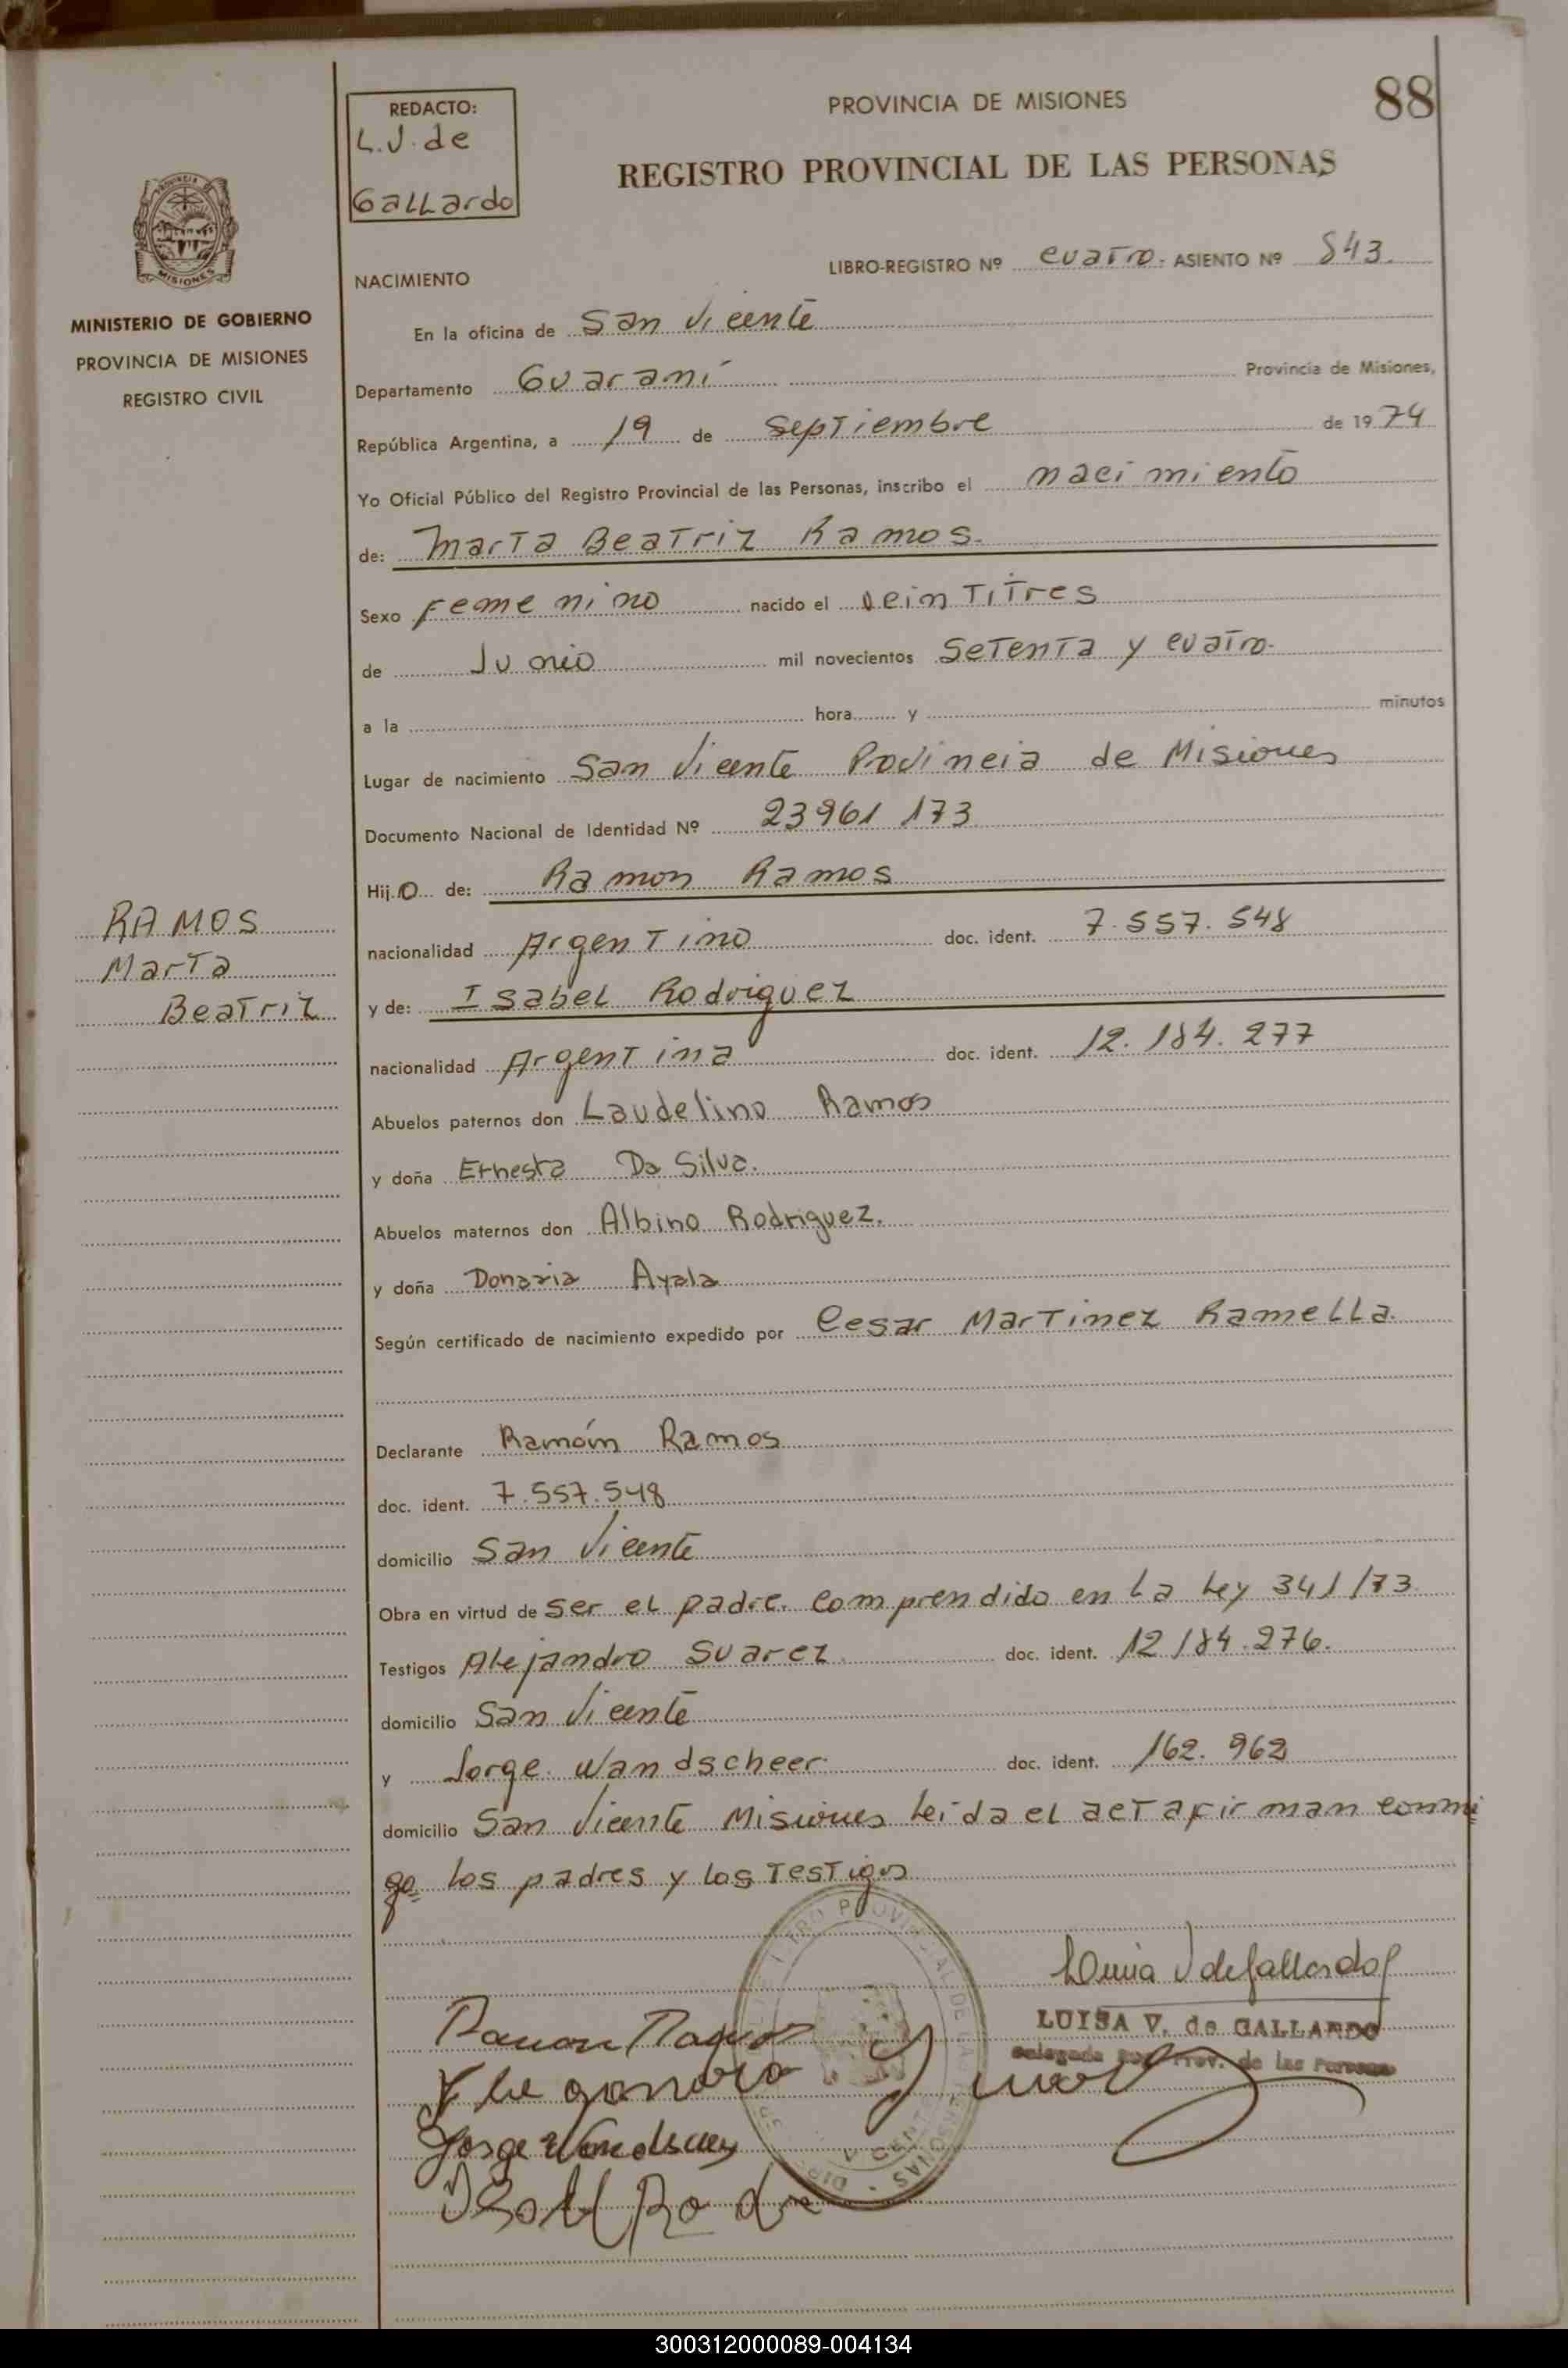 88
PROVINCIA DE MISIONES
REDACTO:
L.V. de
Gallardo
REGISTRO PROVINCIAL DE LAS PERSONAS
PROVINCIA DE
MISIONES
MINISTERIO DE GOBIERNO
PROVINCIA DE MISIONES
REGISTRO CIVIL
NACIMIENTO
LIBRO-REGISTRO Nº cuatro. ASIENTO Nº 843.
En la oficina de San Vicente
Departamento Guaraní Provincia de Misiones,
República Argentina, a 19 de Septiembre de 1974
Yo Oficial Público del Registro Provincial de las Personas, inscribo el nacimiento
de: Marta Beatriz Ramos.
Sexo Femenino nacido el veintitres
de Junio mil novecientos setenta y cuatro.
a la hora y minutos
Lugar de nacimiento San Vicente Provincia de Misiones
Documento Nacional de Identidad Nº 23961173
Hijo de: Ramon Ramos
RAMOS
Marta
Beatriz
nacionalidad Argentino doc. ident. 7.557.548
y de: Isabel Rodriguez
nacionalidad Argentina doc. ident. 12.184.277
Abuelos paternos don Laudelino Ramos
y doña Ernesta Da Silva.
Abuelos maternos don Albino Rodriguez.
y doña Donaria Ayala
Según certificado de nacimiento expedido por Cesar Martinez Ramella.
Declarante Ramón Ramos
doc. ident. 7.557.548
domicilio San Vicente
Obra en virtud de ser el padre. comprendido en la ley 341/73
Testigos Alejandro Suarez doc. ident. 12184.276.
domicilio San Vicente
y Jorge Wandscheer doc. ident. 162.962
domicilio San Vicente Misiones leida el acta firman conmi
go los padres y los testigos
LUISA V. de GALLARDO
Delegada Reg. Prov. de las Personas
Ramon Ramos
Jorge Wandscheer
Isabel Rodri
300312000089-004134